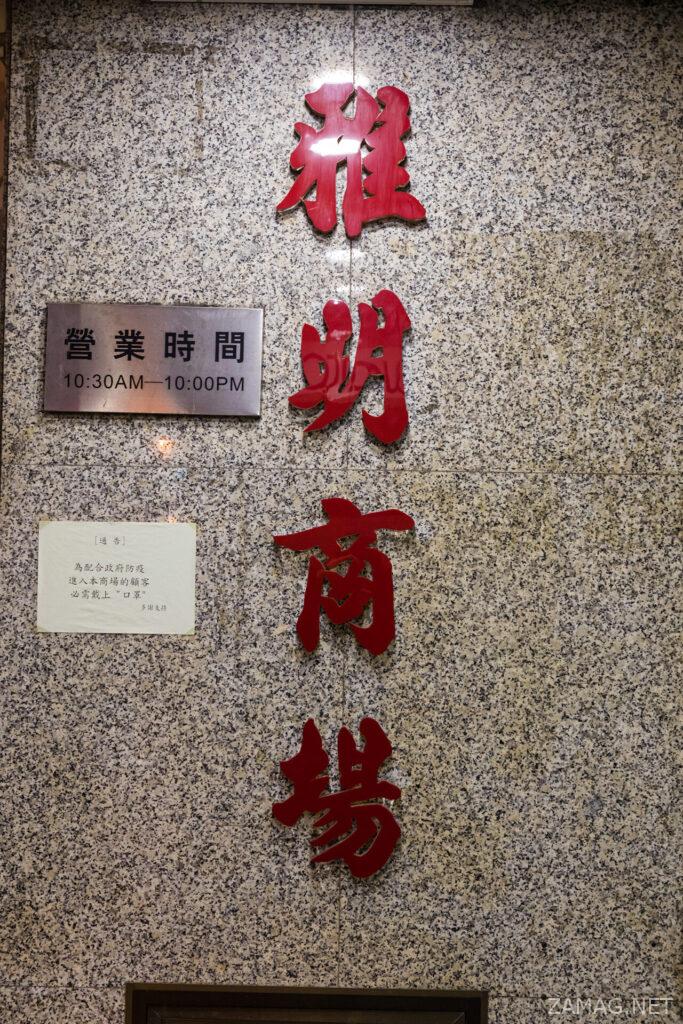 雅明商場
營業時間
10:30AM—10:00PM
[通告]
為配合政府防疫
進入本商場的顧客
必需戴上“口罩”
多謝支持
ZAMAG.NET